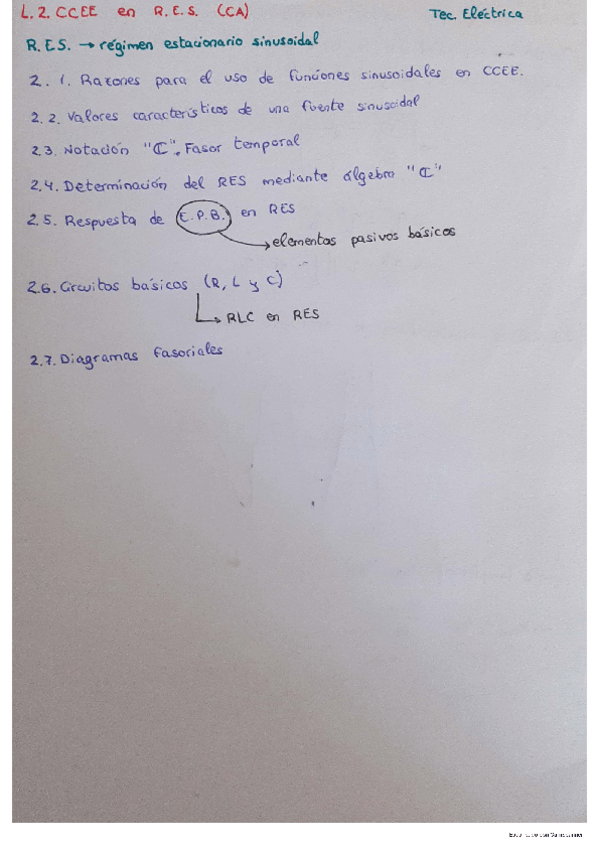 L.2. CCEE en R.E.S. (CA) Tec. Eléctrica
R.E.S. → régimen estacionario sinusoidal
2.1. Razones para el uso de funciones sinusoidales en CCEE.
2.2. Valores característicos de una fuente sinusoidal
2.3. Notación "ℂ". Fasor temporal
2.4. Determinación del RES mediante álgebra "ℂ"
2.5. Respuesta de E.P.B. en RES
→ elementos pasivos básicos
2.6. Circuitos básicos (R, L y C)
↳ RLC en RES
2.7. Diagramas fasoriales